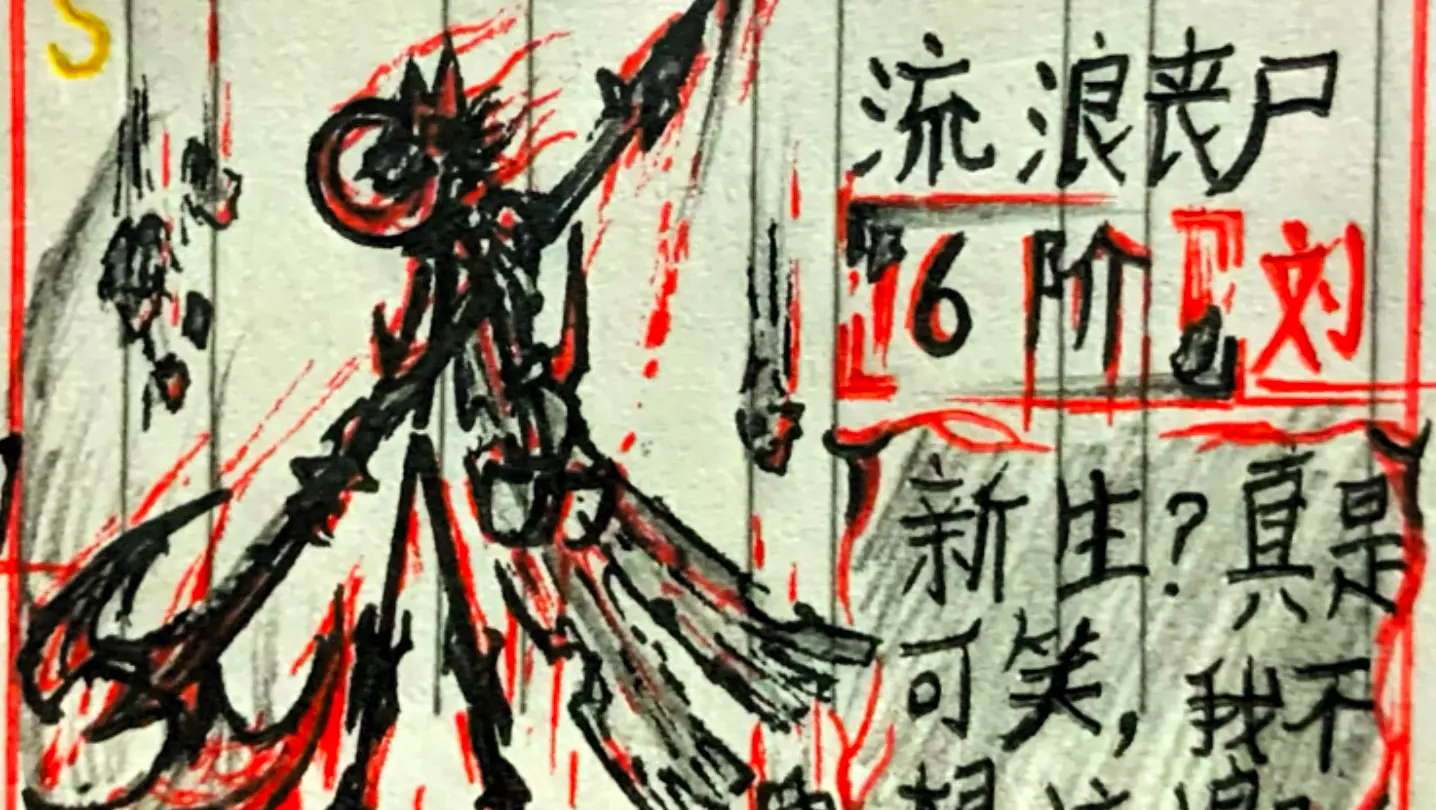 流浪丧尸
『6阶』刘
新生？真是
可笑，我不